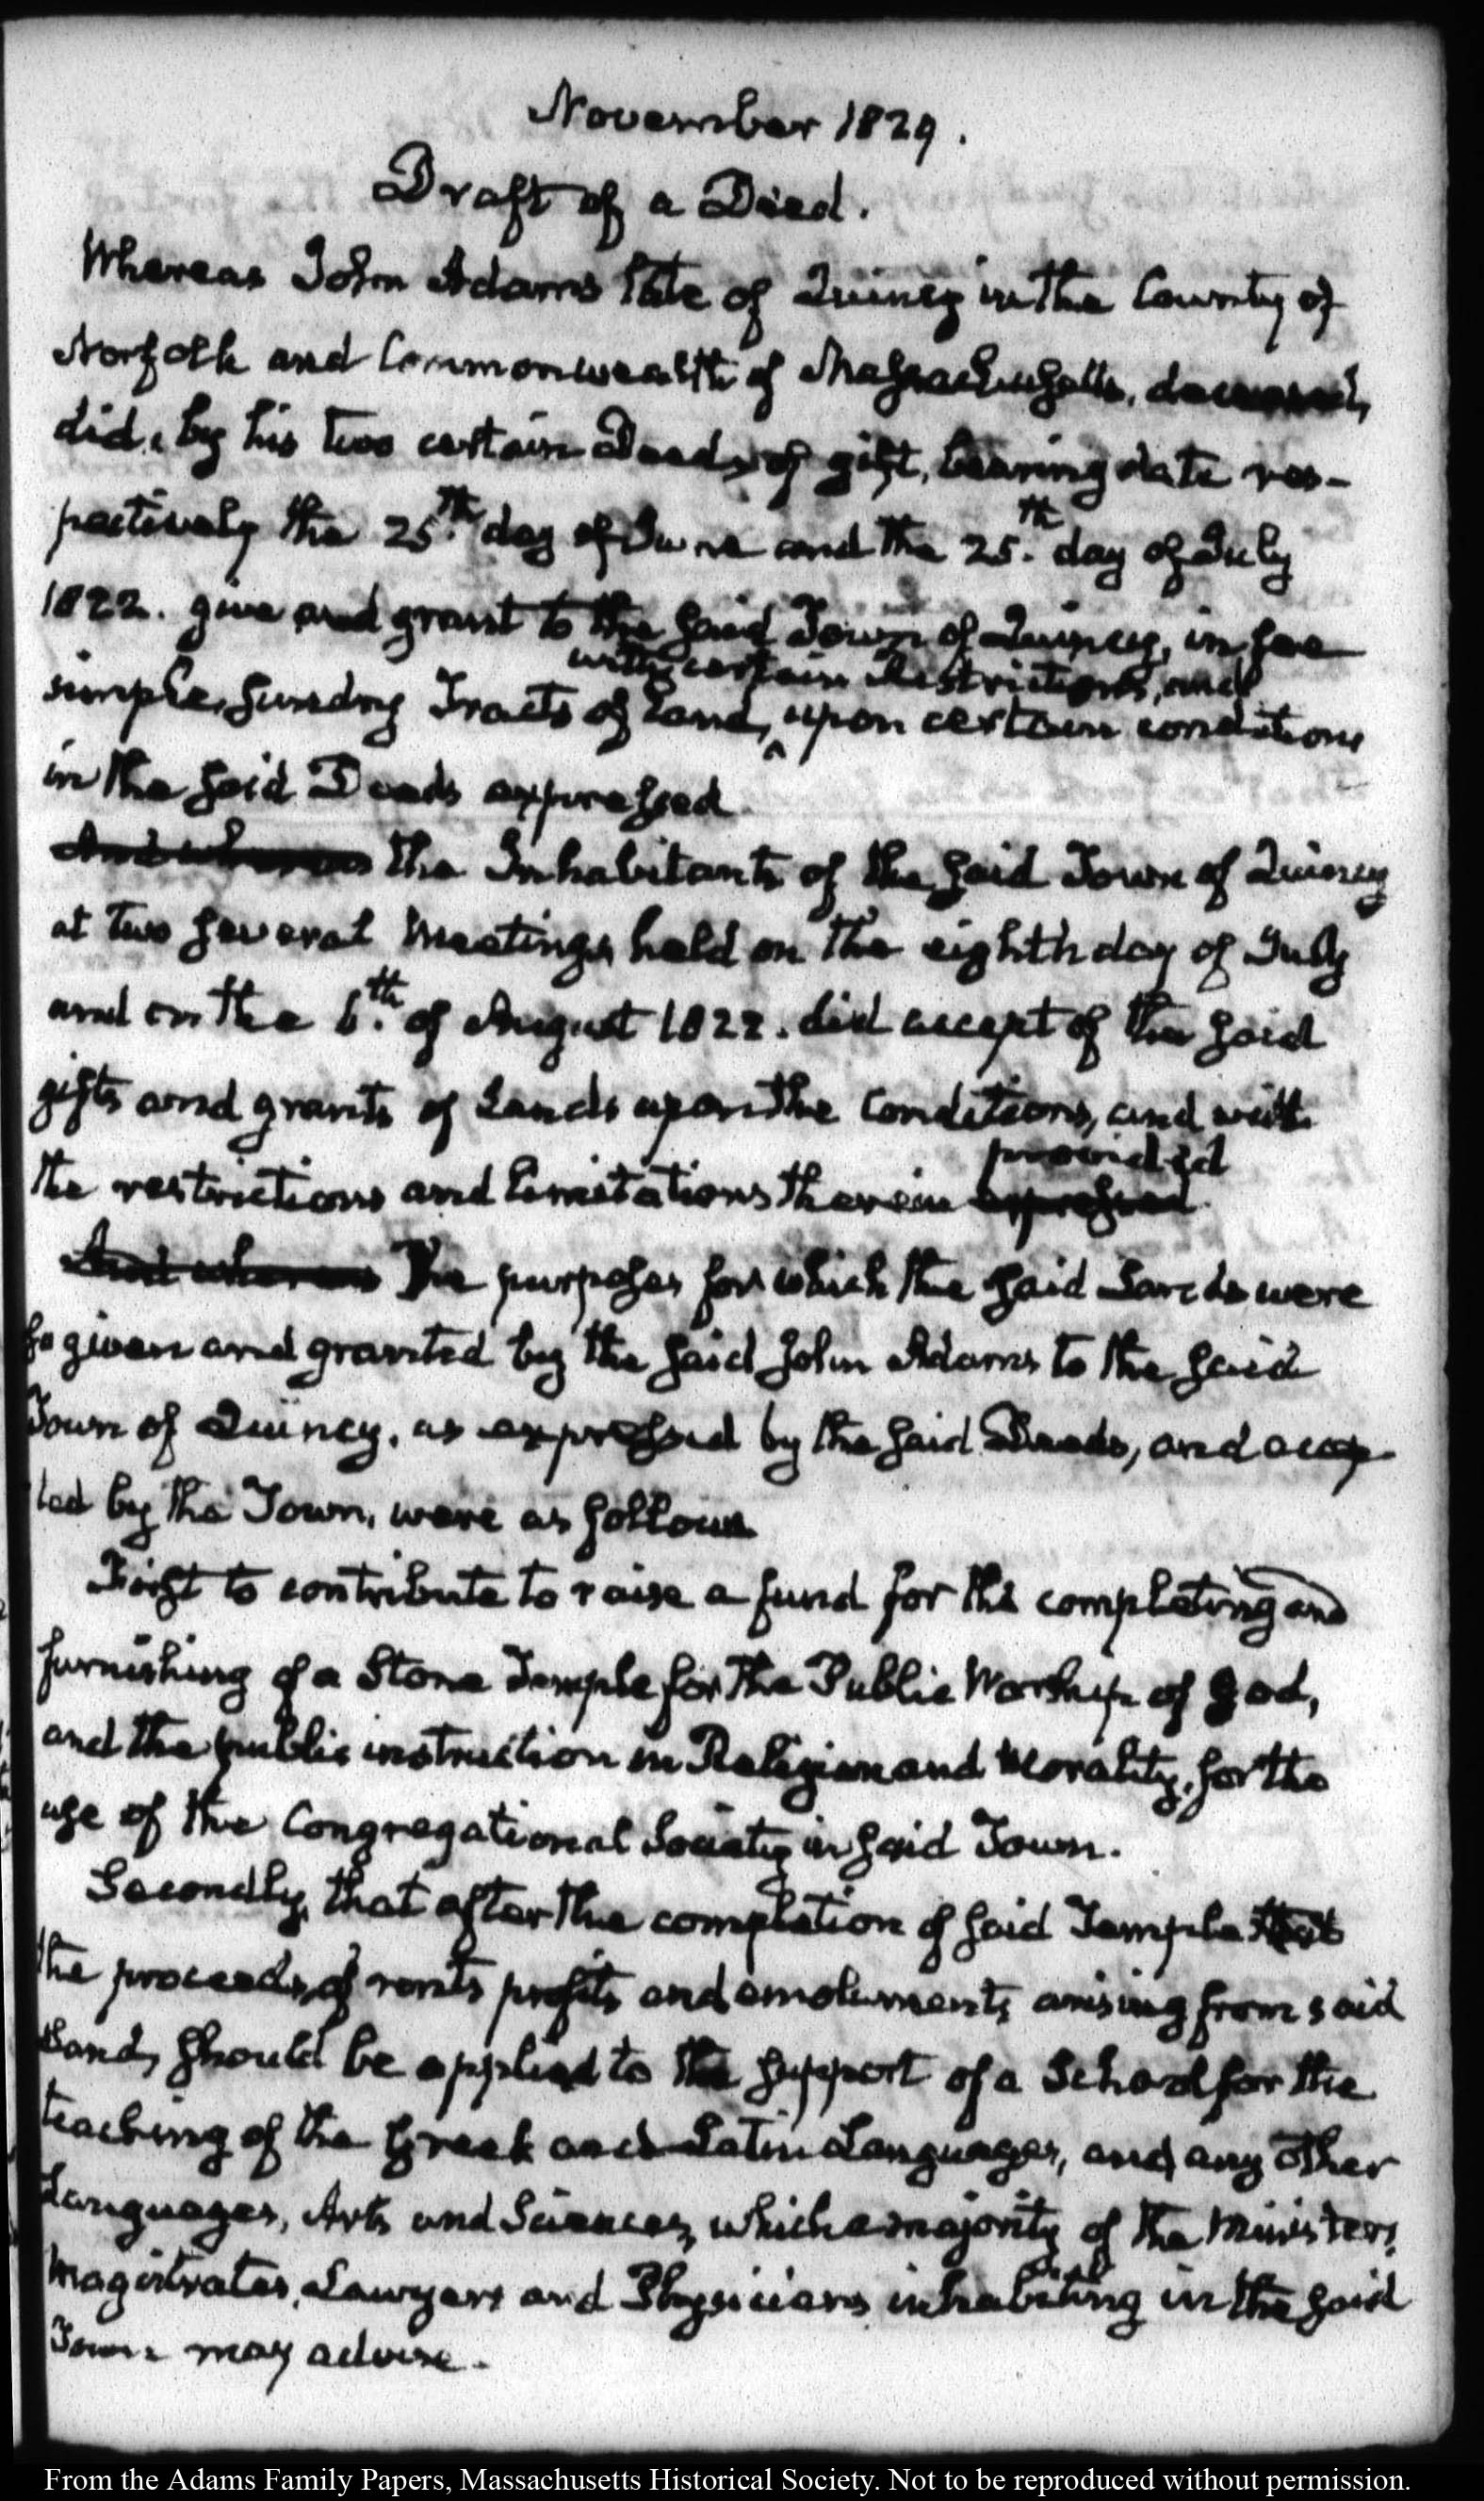 November 1829.
Draft of a Deed.
Whereas John Adams late of Quincy in the County of
Norfolk and Commonwealth of Massachusetts, deceased,
did, by his two certain Deeds of gift, bearing date res-
pectively the 25.th day of June and the 25.th day of July
1822. give and grant to the said Town of Quincy, in fee
with certain restrictions, and
simple, sundry Tracts of Land, ^ upon certain conditions
in the said Deeds expressed
And whereas the Inhabitants of the said Town of Quincy
at two several Meetings held on the eighth day of July
and on the 6.th of August 1822. did accept of the said
gifts and grants of Lands upon the conditions, and with
provided
the restrictions and limitations therein expressed
And whereas The purposes for which the said Lands were
so given and granted by the said John Adams to the said
Town of Quincy, as expressed by the said Deeds, and accep-
ted by the Town, were as follows
First to contribute to raise a fund for the completing and
furnishing of a Stone Temple for the Public Worship of God,
and the public instruction in Religion and Morality, for the
use of the Congregational Society in said Town.
Secondly, that after the completion of said Temple that
the proceeds, of rents profits and emoluments arising from said
Land, should be applied to the support of a School for the
teaching of the Greek and Latin Languages, and any other
Languages, Arts and Sciences, which a majority of the Ministers,
Magistrates, Lawyers and Physicians inhabiting in the said
Town may advise.
From the Adams Family Papers, Massachusetts Historical Society. Not to be reproduced without permission.